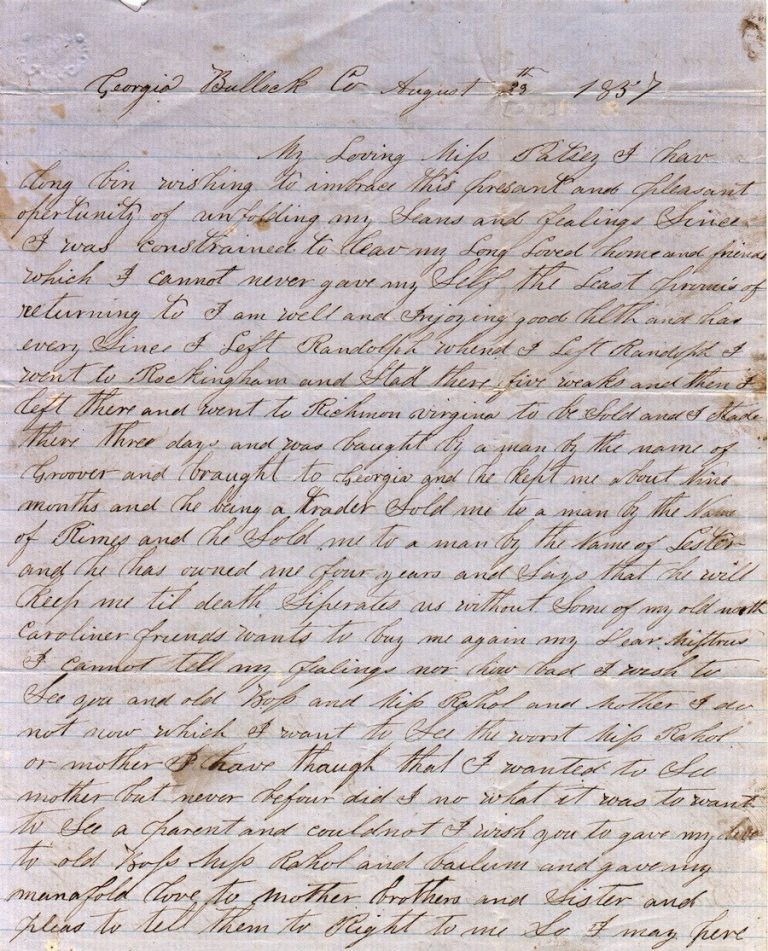 Georgia Bullock Co August 29th 1857
My Loving Miss Patsey I hav
long bin wishing to imbrace this presant and pleasant
opertunity of unfolding my Seans and fealings Since
I was constrained to leav my Long Loved home and friends
which I cannot never gave my Self the Least promis of
returning to I am well and Injoying good hlth and has
every Since I Left Randolph whend I Left Randolph I
went to Rockingham and Stad there five weaks and then I
left there and went to Richmon virgina to be Sold and I Stade
there three days and was baught by a man by the name of
Groover and braught to Georgia and he kept me about nine
months and he being a trader Sold me to a man by the Name
of Rimes and he Sold me to a man by the Name of Lester
and he has owned me four years and Says that he will
keep me til death Siperates us without Some of my old north
caroliner friends wants to buy me again my Dear Mistress
I cannot tell my fealings nor how bad I wish to
See you and old Boss and Miss Rahol and Mother I do
not now which I want to See the worst Miss Rahol
or mother I have though that I wanted to See
mother but never befour did I no what it was to want
to See a parent and could not I wish you to gave my love
to old Boss Miss Rahol and bailum and gave my
manafold love to mother brothers and sister and
pleas to tell them to Right to me So I may here